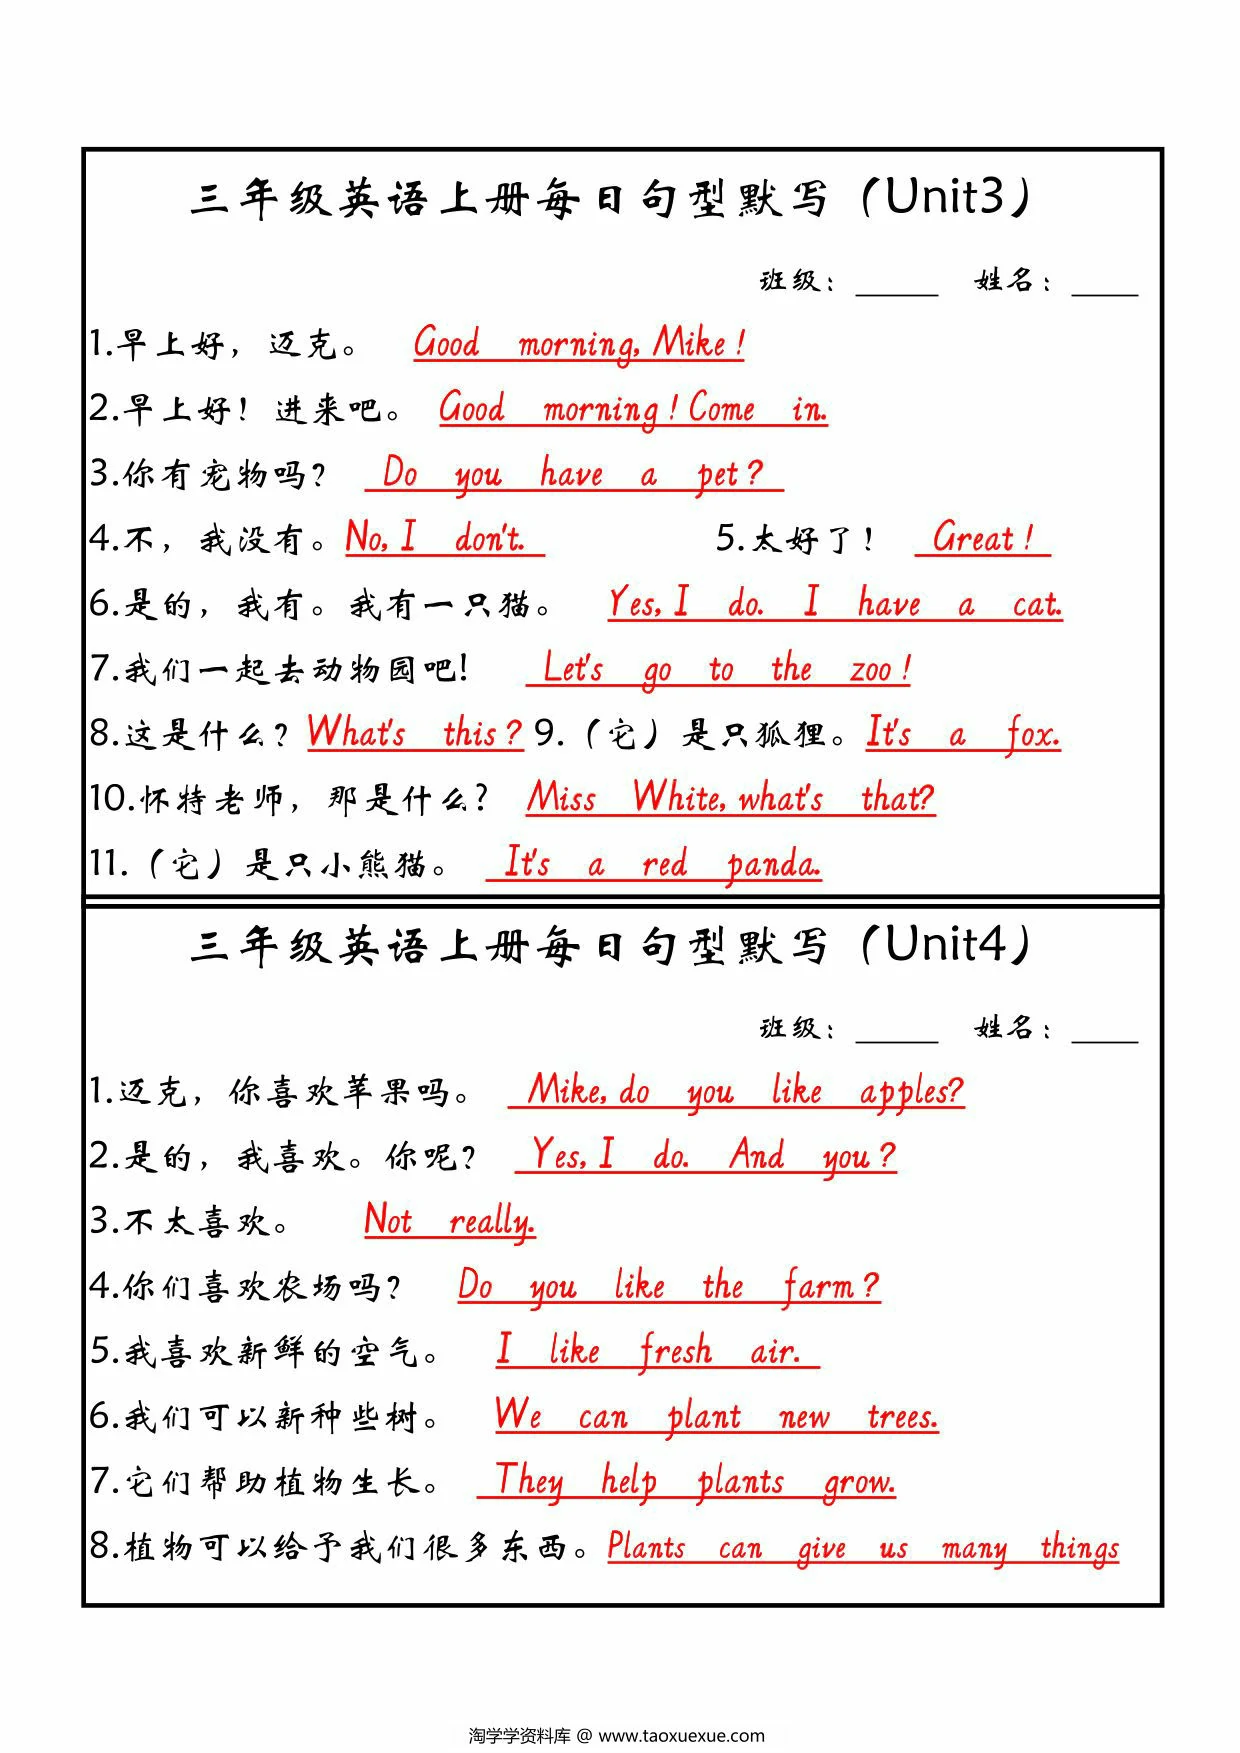 三年级英语上册每日句型默写（Unit3）
班级：_____ 姓名：____
1.早上好，迈克。 Good morning, Mike!
2.早上好！进来吧。 Good morning! Come in.
3.你有宠物吗？ Do you have a pet?
4.不，我没有。No, I don't. 5.太好了！ Great!
6.是的，我有。我有一只猫。 Yes, I do. I have a cat.
7.我们一起去动物园吧! Let's go to the zoo!
8.这是什么？What's this? 9.（它）是只狐狸。It's a fox.
10.怀特老师，那是什么? Miss White, what's that?
11.（它）是只小熊猫。 It's a red panda.
三年级英语上册每日句型默写（Unit4）
班级：_____ 姓名：____
1.迈克，你喜欢苹果吗。 Mike, do you like apples?
2.是的，我喜欢。你呢？ Yes, I do. And you?
3.不太喜欢。 Not really.
4.你们喜欢农场吗？ Do you like the farm?
5.我喜欢新鲜的空气。 I like fresh air.
6.我们可以新种些树。 We can plant new trees.
7.它们帮助植物生长。 They help plants grow.
8.植物可以给予我们很多东西。Plants can give us many things
淘学学资料库 @ www.taoxuexue.com